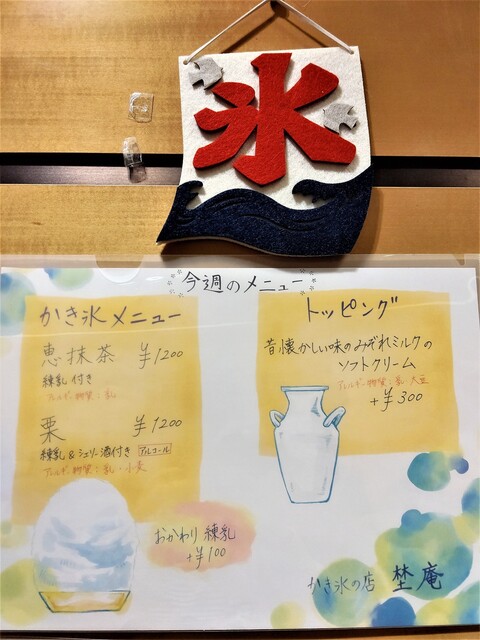 氷
今週のメニュー
かき氷メニュー
恵抹茶 ¥1200
練乳付き
アレルギー物質:乳
栗 ¥1200
練乳&シェリー酒付き アルコール
アレルギー物質:乳・小麦
おかわり練乳
+¥100
トッピング
昔懐かしい味のみぞれミルクの
ソフトクリーム
アレルギー物質:乳・大豆
+¥300
かき氷の店 埜庵